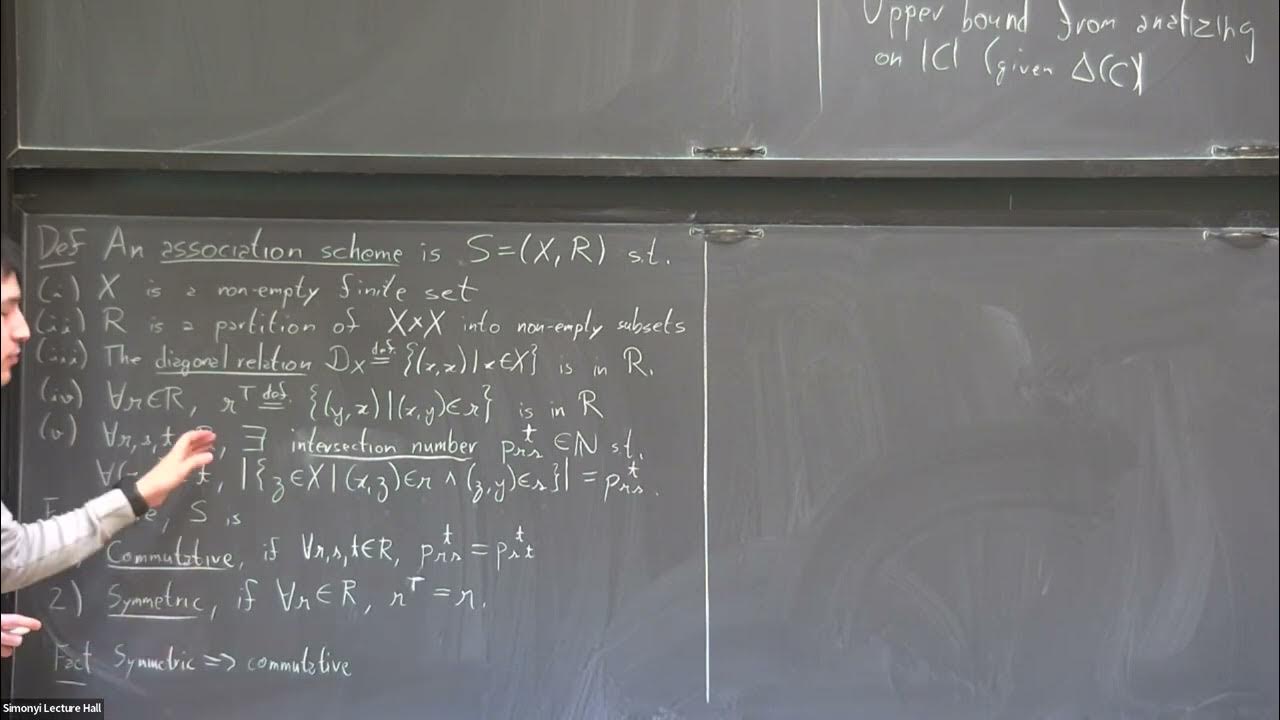 Upper bound from analizing
on |C| (given Δ(C)
Def An association scheme is S=(X,R) s.t.
(i) X is a non-empty finite set
(ii) R is a partition of X×X into non-empty subsets
(iii) The diagonal relation D_X ≝ {(x,x)|x∈X} is in R.
(iv) ∀r∈R, r^T ≝ {(y,x)|(x,y)∈r} is in R
(v) ∀r,s,t , ∃ intersection number p_{rs}^t ∈ℕ st.
∀( t, |{z∈X|(x,z)∈r ∧ (z,y)∈s}| = p_{rs}^t.
S is
Commutative, if ∀r,s,t∈R, p_{rs}^t = p_{st}^t
2) Symmetric, if ∀r∈R, r^T = r.
Fact Symmetric ⇒ commutative
Simonyi Lecture Hall